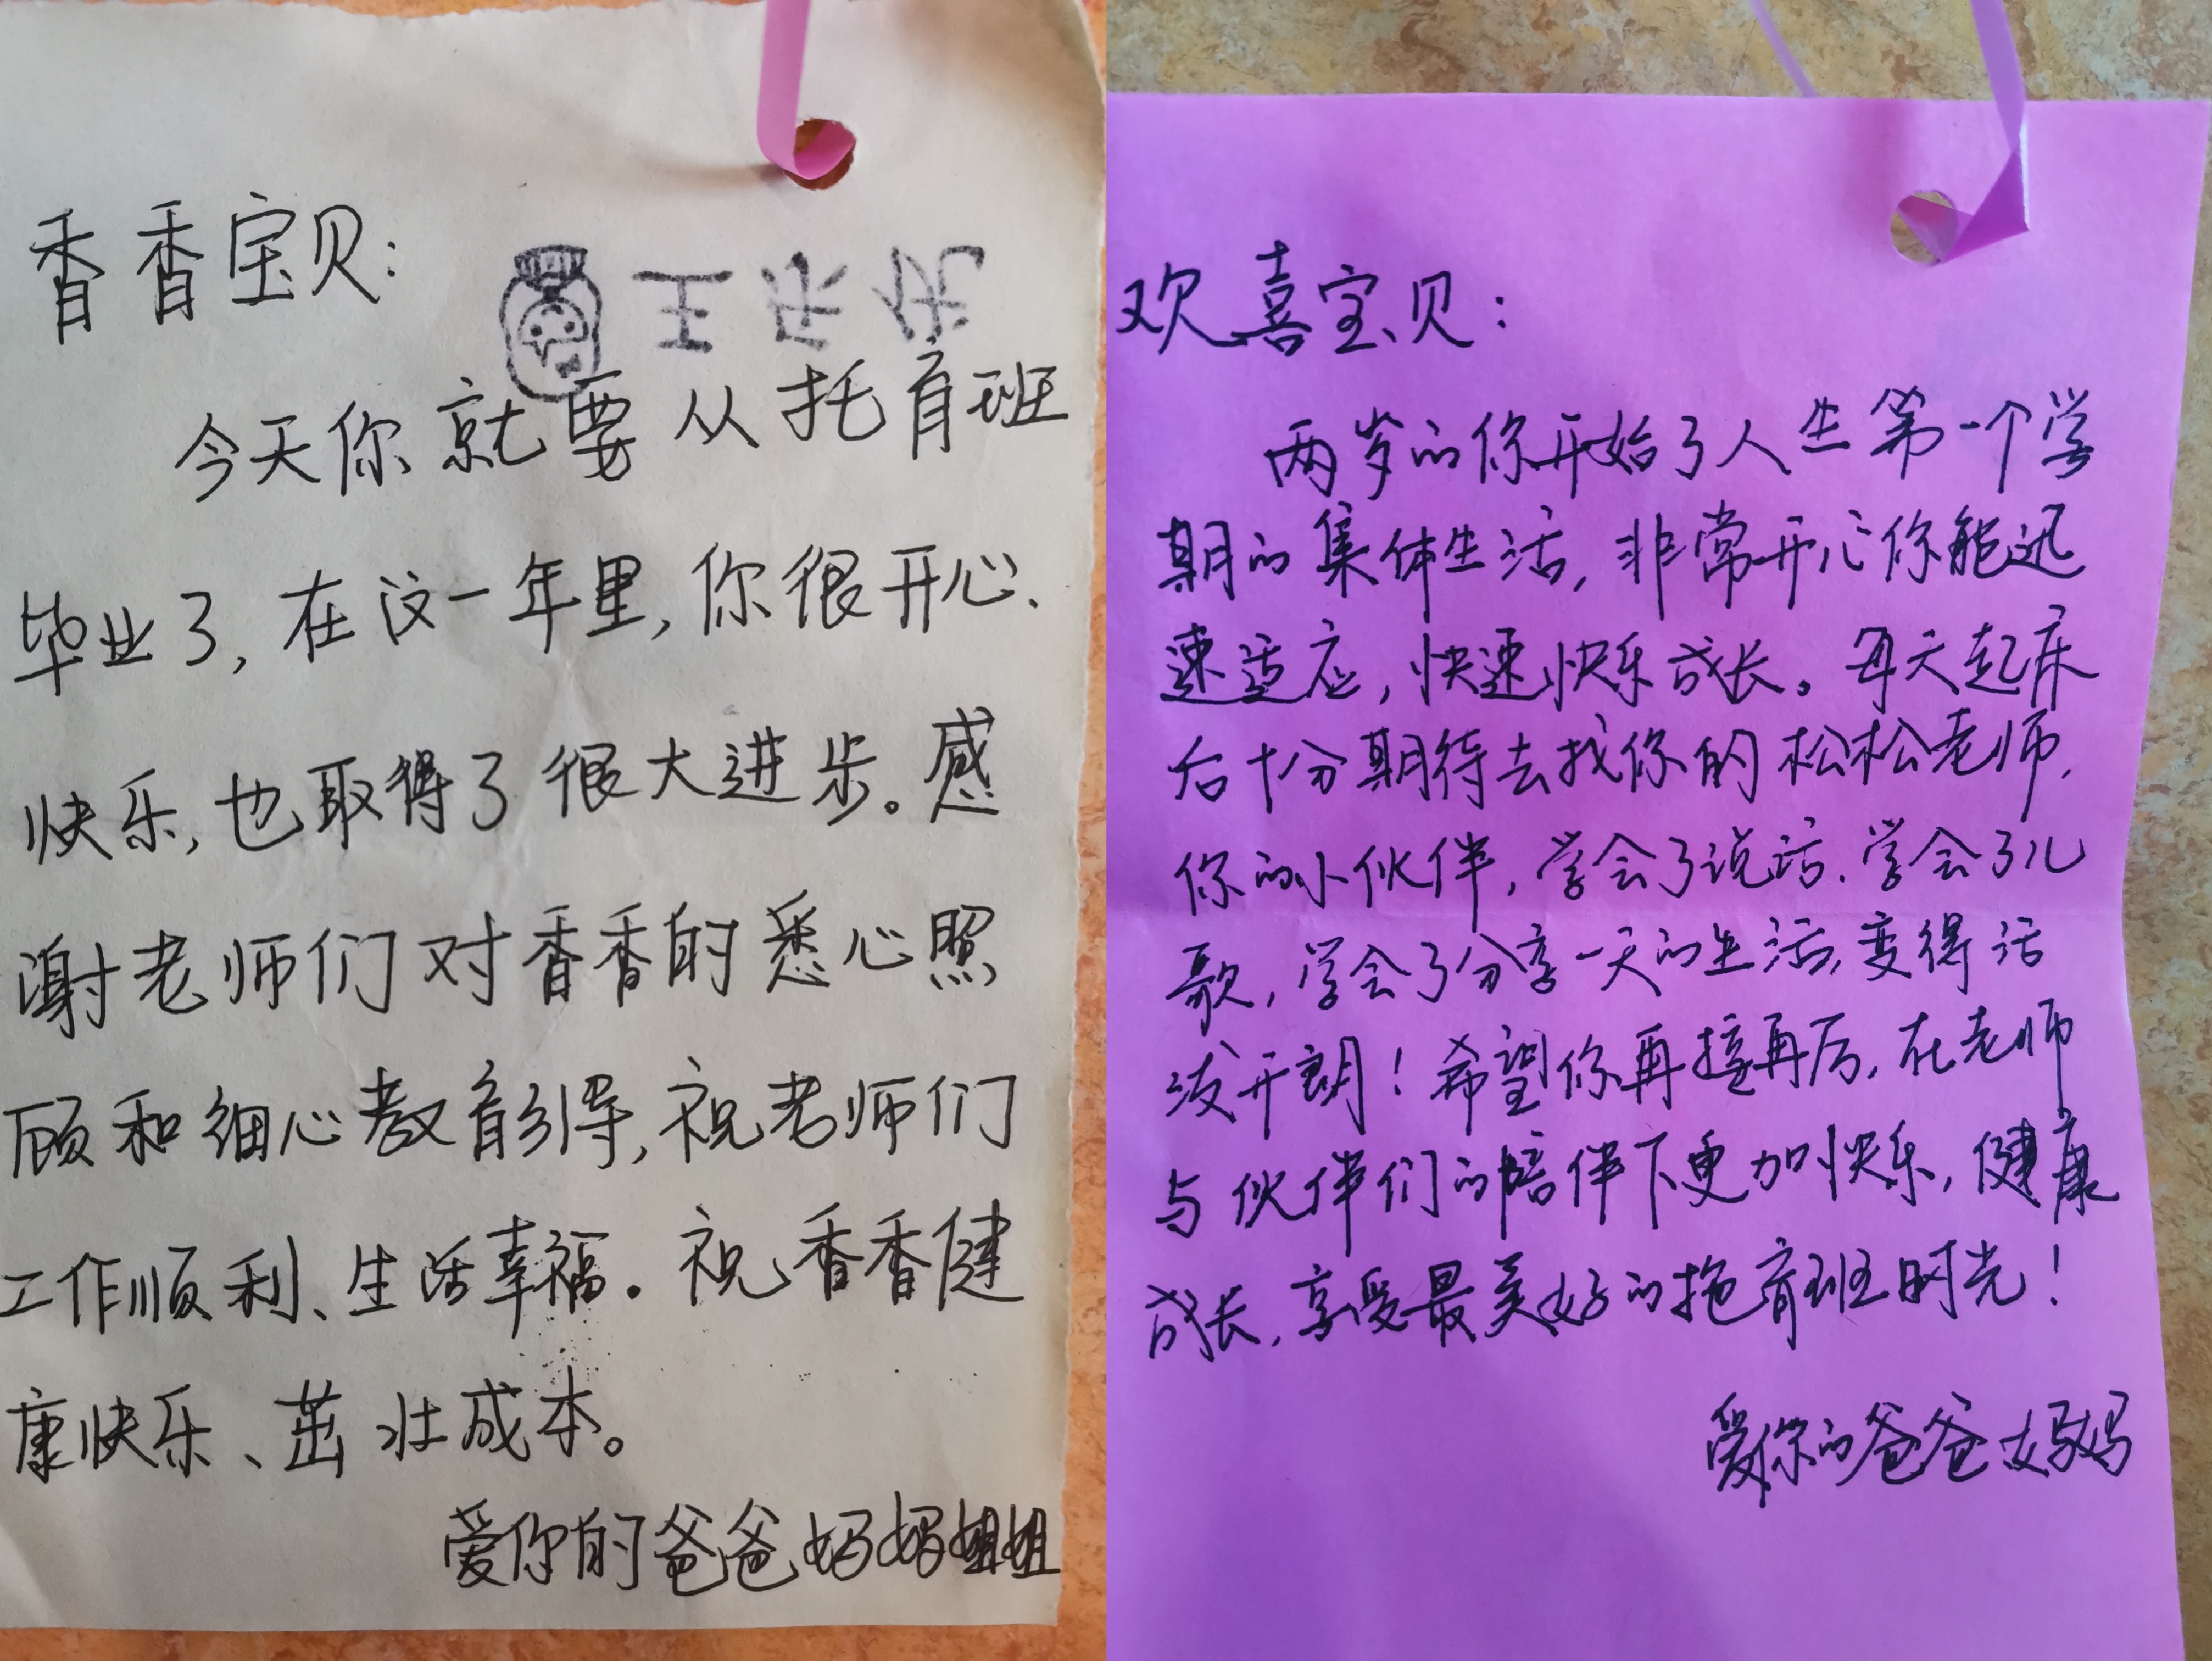 香香宝贝:
王乐乐
今天你就要从托育班
毕业了,在这一年里,你很开心、
快乐,也取得了很大进步。感
谢老师们对香香的悉心照
顾和细心教育引导,祝老师们
工作顺利、生活幸福。祝香香健
康快乐、茁壮成本。
爱你的爸爸妈妈姐姐
欢喜宝贝:
两岁的你开始了人生第一个学
期的集体生活,非常开心你能迅
速适应,快速快乐成长。每天起床
后十分期待去找你的松松老师、
你的小伙伴,学会了说话、学会了儿
歌,学会了分享一天的生活,变得活
泼开朗!希望你再接再厉,在老师
与伙伴们的陪伴下更加快乐,健康
成长,享受最美好的拖育班时光!
爱你的爸爸妈妈